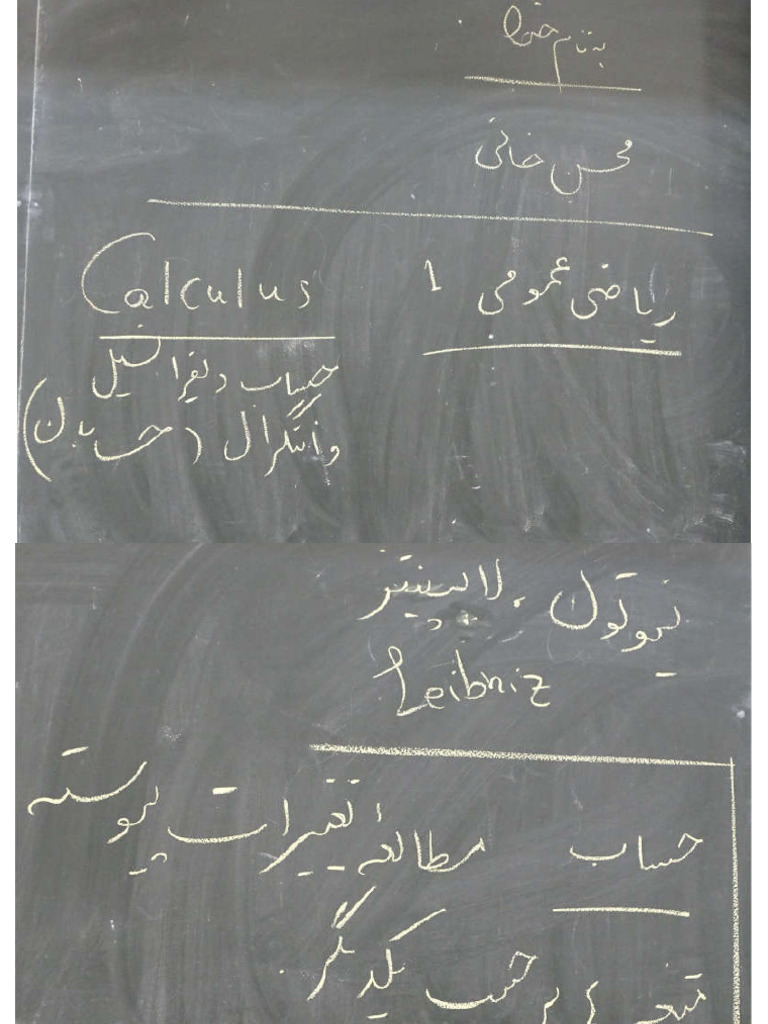 به نام خدا
محسن خانی
ریاضی عمومی 1
Calculus
حساب دیفرانسیل
و انتگرال (حسابان)
نیوتون، لایبنیتز
Leibniz
حساب مطالعهٔ تغییرات پیوسته
بر حسب یکدیگر.